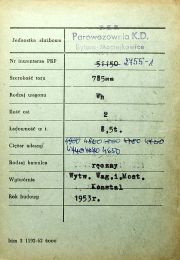 P.K.P.
Jednostka służbowa Parowozownia K.D.
Bytom-Maciejkowice
Nr inwentarza PKP 51150 2755-1
Szerokość toru 785mm
Rodzaj wagonu Wh
Ilość osi 2
Ładowność w t. 8,5t.
Ciężar własny 4700
4650
Rodzaj hamulca ręczny
Wytwórnia Wytw. Wag.i.Most.
Konstal
Rok budowy 1953r.